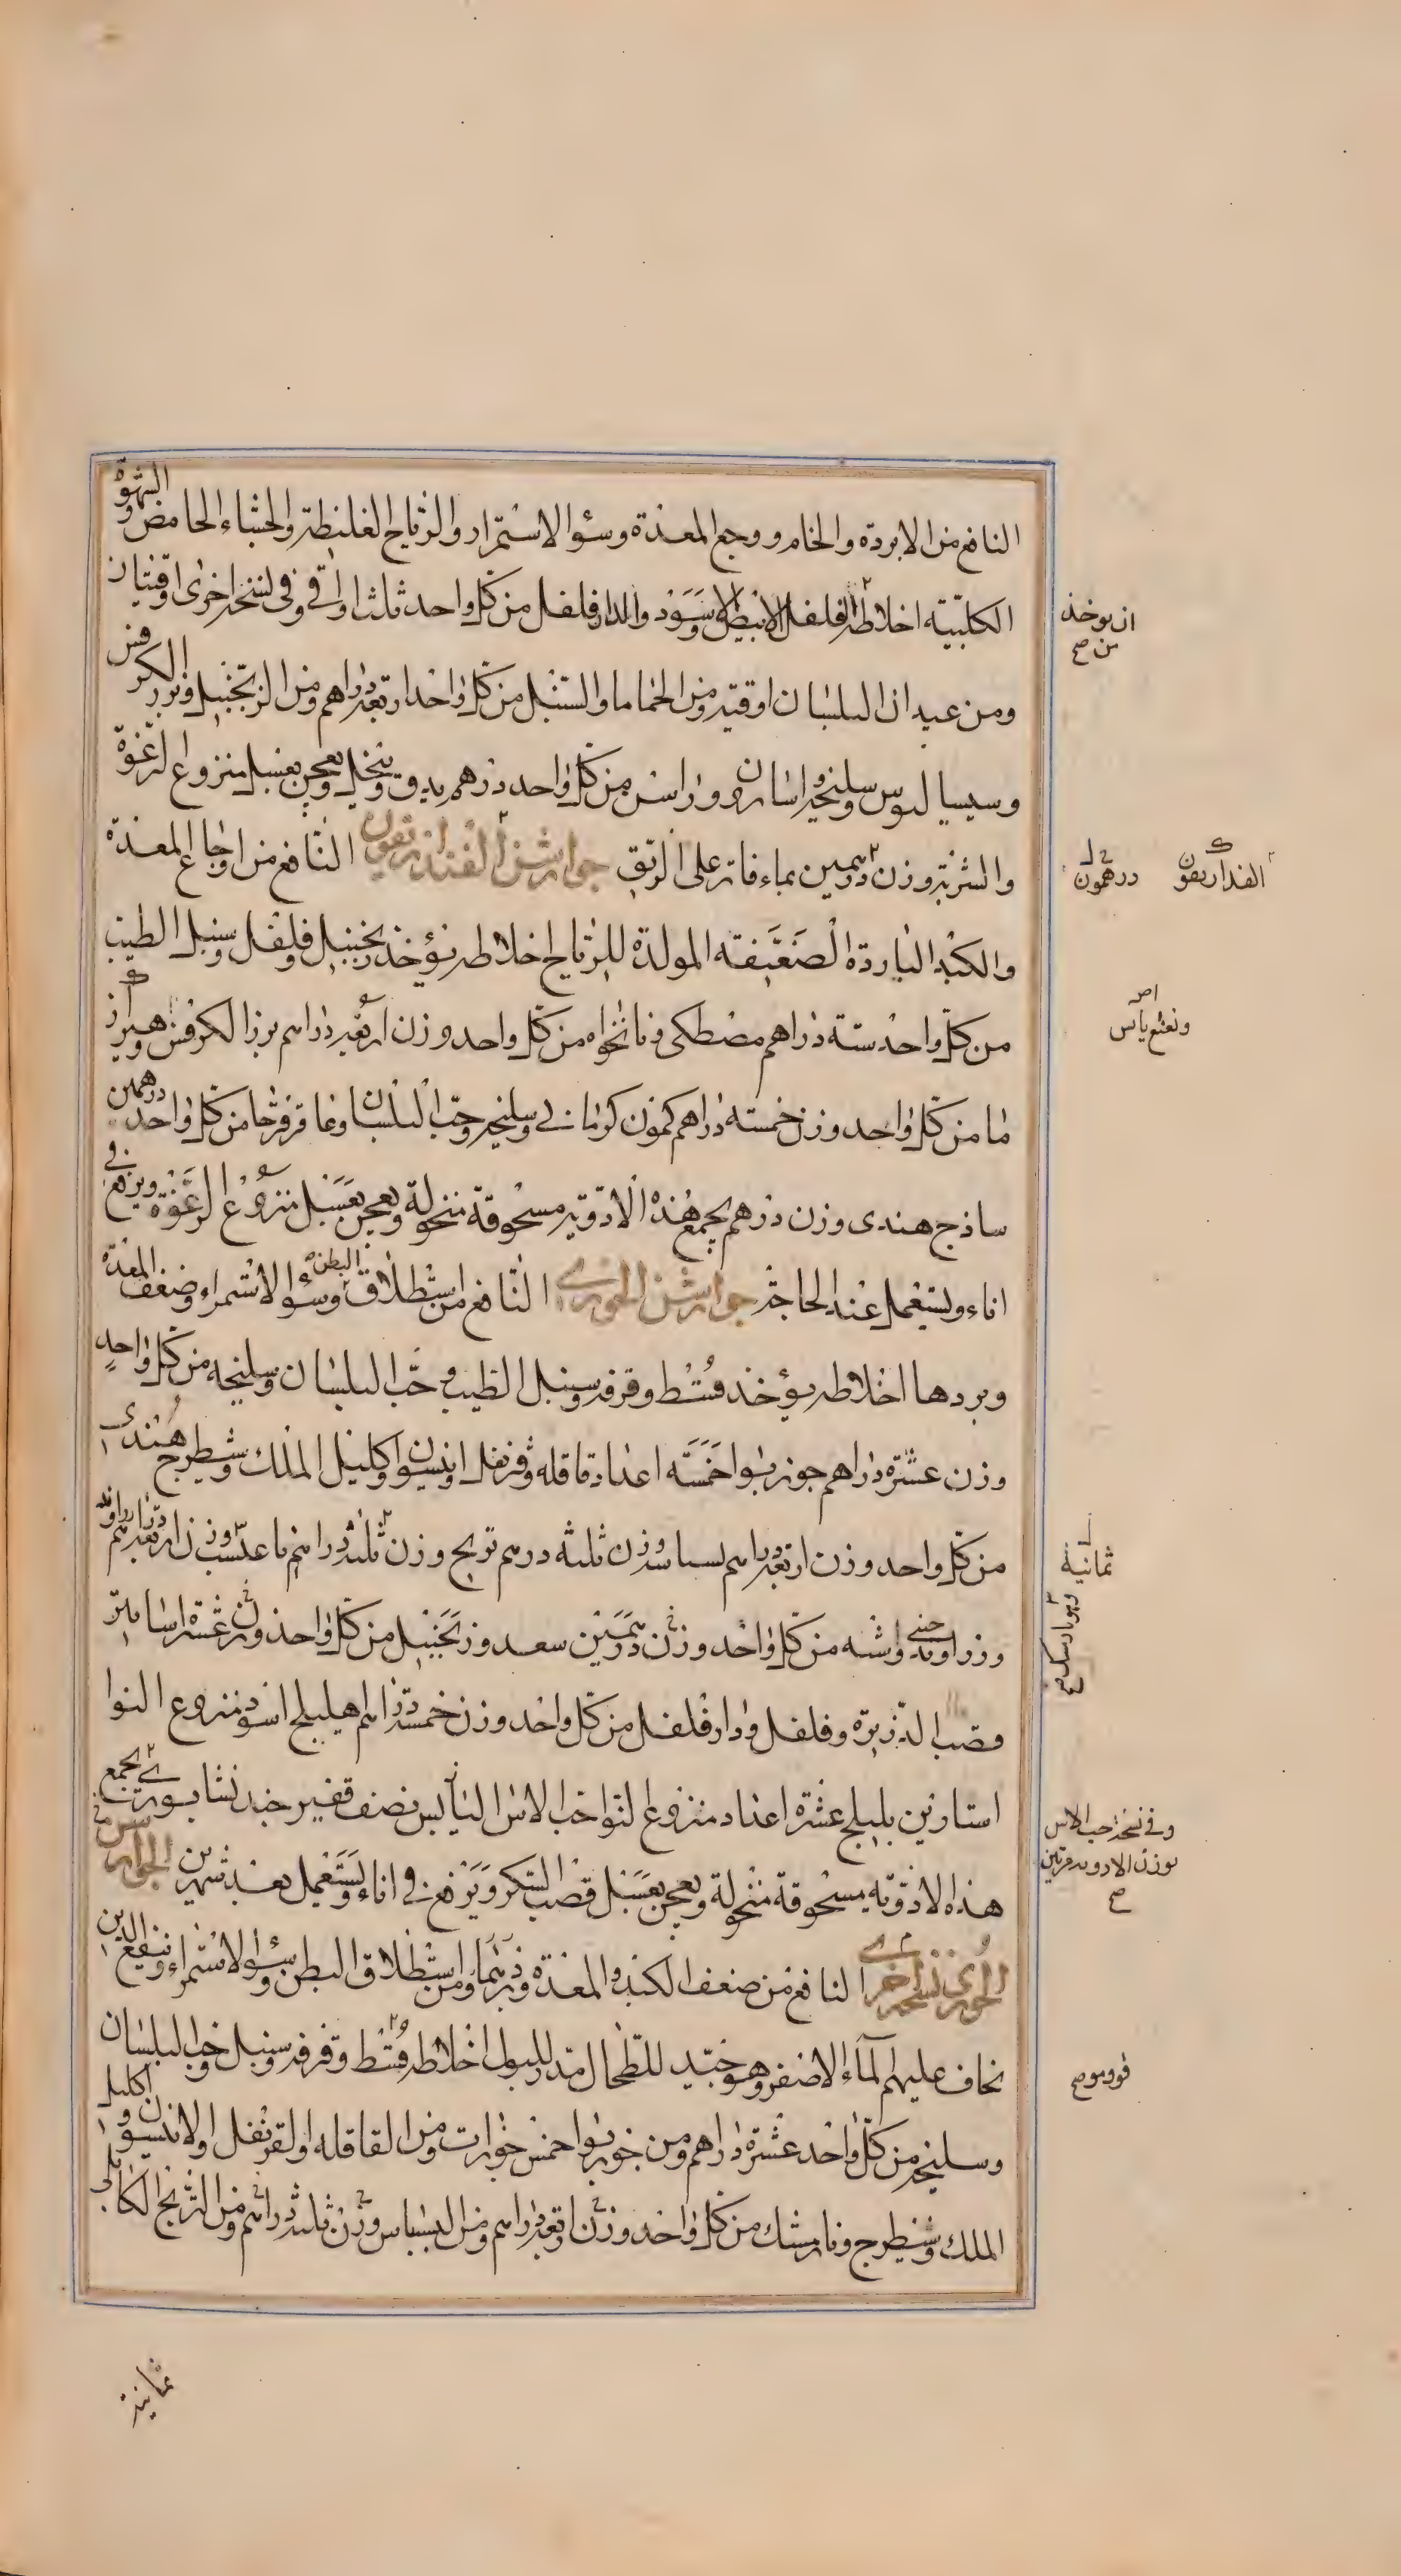 النافع من الابردة والخام ووجع المعدة وسؤ الاستمرار والرياح الغليظة والجشاء الحامض والشهوة
الكلبية اخلاطه الفلفل الابيض والاسود والدارفلفل من كل واحد ثلث اواقي وفي نسخة اخرى اوقيتان
ومن عيدان البلسان اوقية ومن الحماما والسنبل من كل واحد اربعة دراهم ومن الزنجبيل وبزر الكرفس
وسيساليوس وسليخة واسارون وراسن من كل واحد درهم يدق وينخل ويعجن بعسل منزوع الرغوة
والشربة وزن درهمين بماء فاتر على الريق جوارشن الفنداريقون النافع من اوجاع المعدة
والكبد الباردة الضعيفة المولدة للرياح اخلاطه يؤخذ زنجبيل وفلفل وسنبل الطيب
من كل واحد ستة دراهم مصطكى ونانخواه من كل واحد وزن اربعة دراهم بزر الكرفس وهيرار
ما من كل واحد وزن خمسة دراهم كمون كرماني وسليخه وحب البلسان وعاقرقرحا من كل واحد درهمين
ساذج هندى وزن درهم يجمع هذه الادوية مسحوقة منخولة ويعجن بعسل منزوع الرغوة ويرفع في
اناء ويستعمل عند الحاجة جوارشن الخوزي النافع من استطلاق البطن وسؤ الاستمراء وضعف المعدة
وبردها اخلاطه يؤخذ قسط وقرفه وسنبل الطيب وحب البلسان وسليخه من كل واحد
وزن عشرة دراهم جوزبوا خمسه اعداد قاقله وقرنفل وانيسون واكليل الملك وشيطرج هندى
من كل واحد وزن اربعة دراهم بسباسه وزن ثلثة درهم تربج وزن ثلثة دراهم وزن اربعة دراهم
وزراوند من كل واحد وزن درهمين سعد وزنجبيل من كل واحد وزن عشرة
وقصب الذريره وفلفل ودارفلفل من كل واحد وزن خمسة دراهم هليلج اسود منزوع النوا
استارين بليلج عشرة اعداد منزوع النوا حب الاس اليابس نصف قفيز يجمع
هذه الادويه مسحوقة منخولة ويعجن بعسل قصب السكر ويرفع في اناء ويستعمل بعد شهرين الجوارشن
الخوزي نسخة اخرى النافع من ضعف الكبد والمعدة وبردهما ومن استطلاق البطن وسؤ الاستمراء وينفع الذين
يخاف عليهم الماء الاصفر وهو جيد للطحال مدر للبول اخلاطه قسط وقرفه وسنبل وحب البلسان
وسليخه من كل واحد عشرة دراهم ومن جوزبوا خمس جوزات ومن القاقله والقرنفل والانيسون واكليل
الملك وشيطرج ونارمشك من كل واحد وزن اربعة دراهم ومن البسباس وزن ثلثة دراهم ومن التربج الكابلي
ان يوخذ
من ح
الفنداريقون
درهمون
ونعنع يابس
ثمانية
وفي نسخة حب الاس
بوزن الادويه مرتين
ح
فودموم
ثمانية